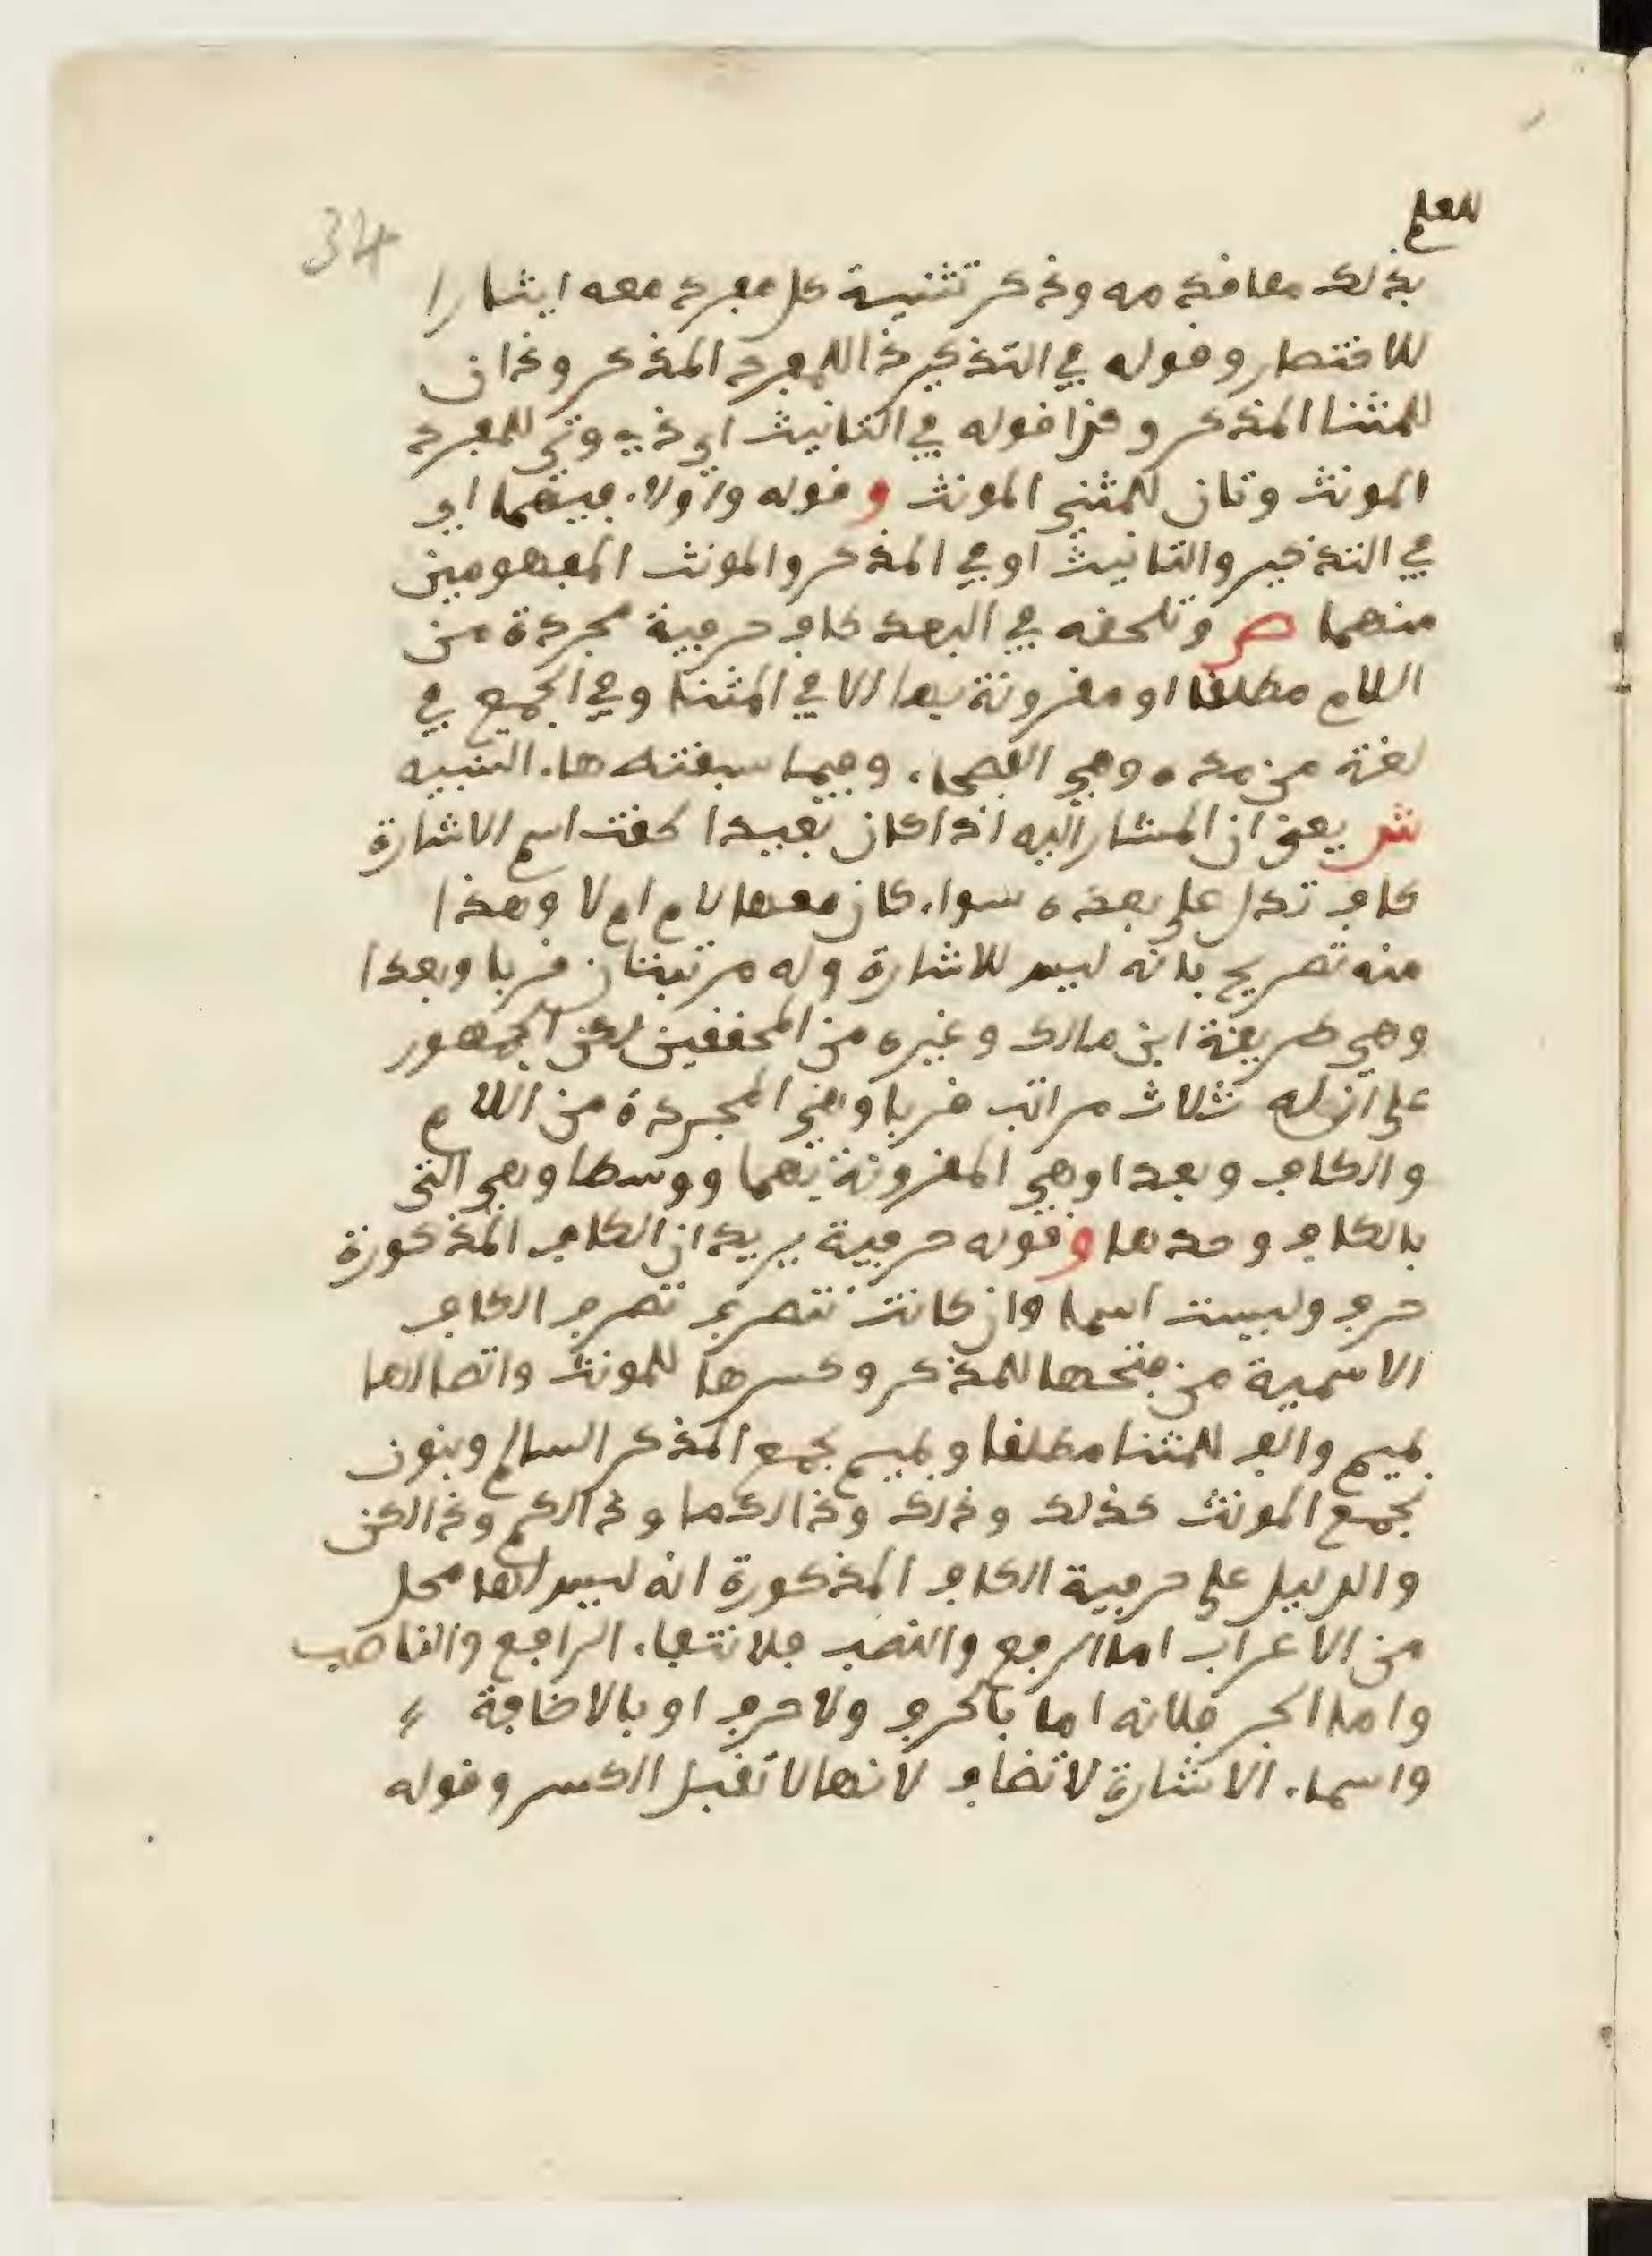 للعلم
34
بذلك مما قدمه وذكر تثنية كل مفرد معه ايثارا
للاقتصار وقوله في التذكير ذا للمفرد المذكر وذان
للمثنا المذكر وكذا قوله في التانيث اي ذي وتي للمفرد
المونث وتان للمثنى المونث وقوله واولاء فيهما اي
في التذكير والتانيث او في المذكر والمونث المفهومين
منهما ص وتلحقه في البعد كاف حرفية مجردة من
اللام مطلقا او مقرونة بها الا في المثنا وفي الجمع في
لغة من مده وهي الفصحاء وفيما سبقته هاء التنبيه
ش يعني ان المشار اليه اذا كان بعيدا لحقت اسم الاشارة
كاف تدل على بعده سواء كان معها لام ام لا وهذا
منه تصريح بانه ليس للاشارة وله مرتبتان قربا وبعدا
وهي طريقة ابن مالك وغيره من المحققين لكن الجمهور
على ان له ثلاث مراتب قربا وهي المجردة من اللام
والكاف وبعدا وهي المقرونة بهما ووسطا وهي التي
بالكاف وحدها وقوله حرفية يريد ان الكاف المذكورة
حرف وليست اسما وان كانت تتصرف تصرف الكاف
الاسمية من فتحها للمذكر وكسرها للمونث واتصالها
بميم والف للمثنا مطلقا وبميم لجمع المذكر السالم وبنون
لجمع المونث كذلك وذلك وذالكما وذالكم وذالكن
والدليل على حرفية الكاف المذكورة انه ليس لها محل
من الاعراب اما الرفع والنصب فلانتفاء الرافع والناصب
واما الجر فلانه اما بالحرف ولا حرف او بالاضافة
واسماء الاشارة لا تضاف لانها لا تقبل الكسر وقوله